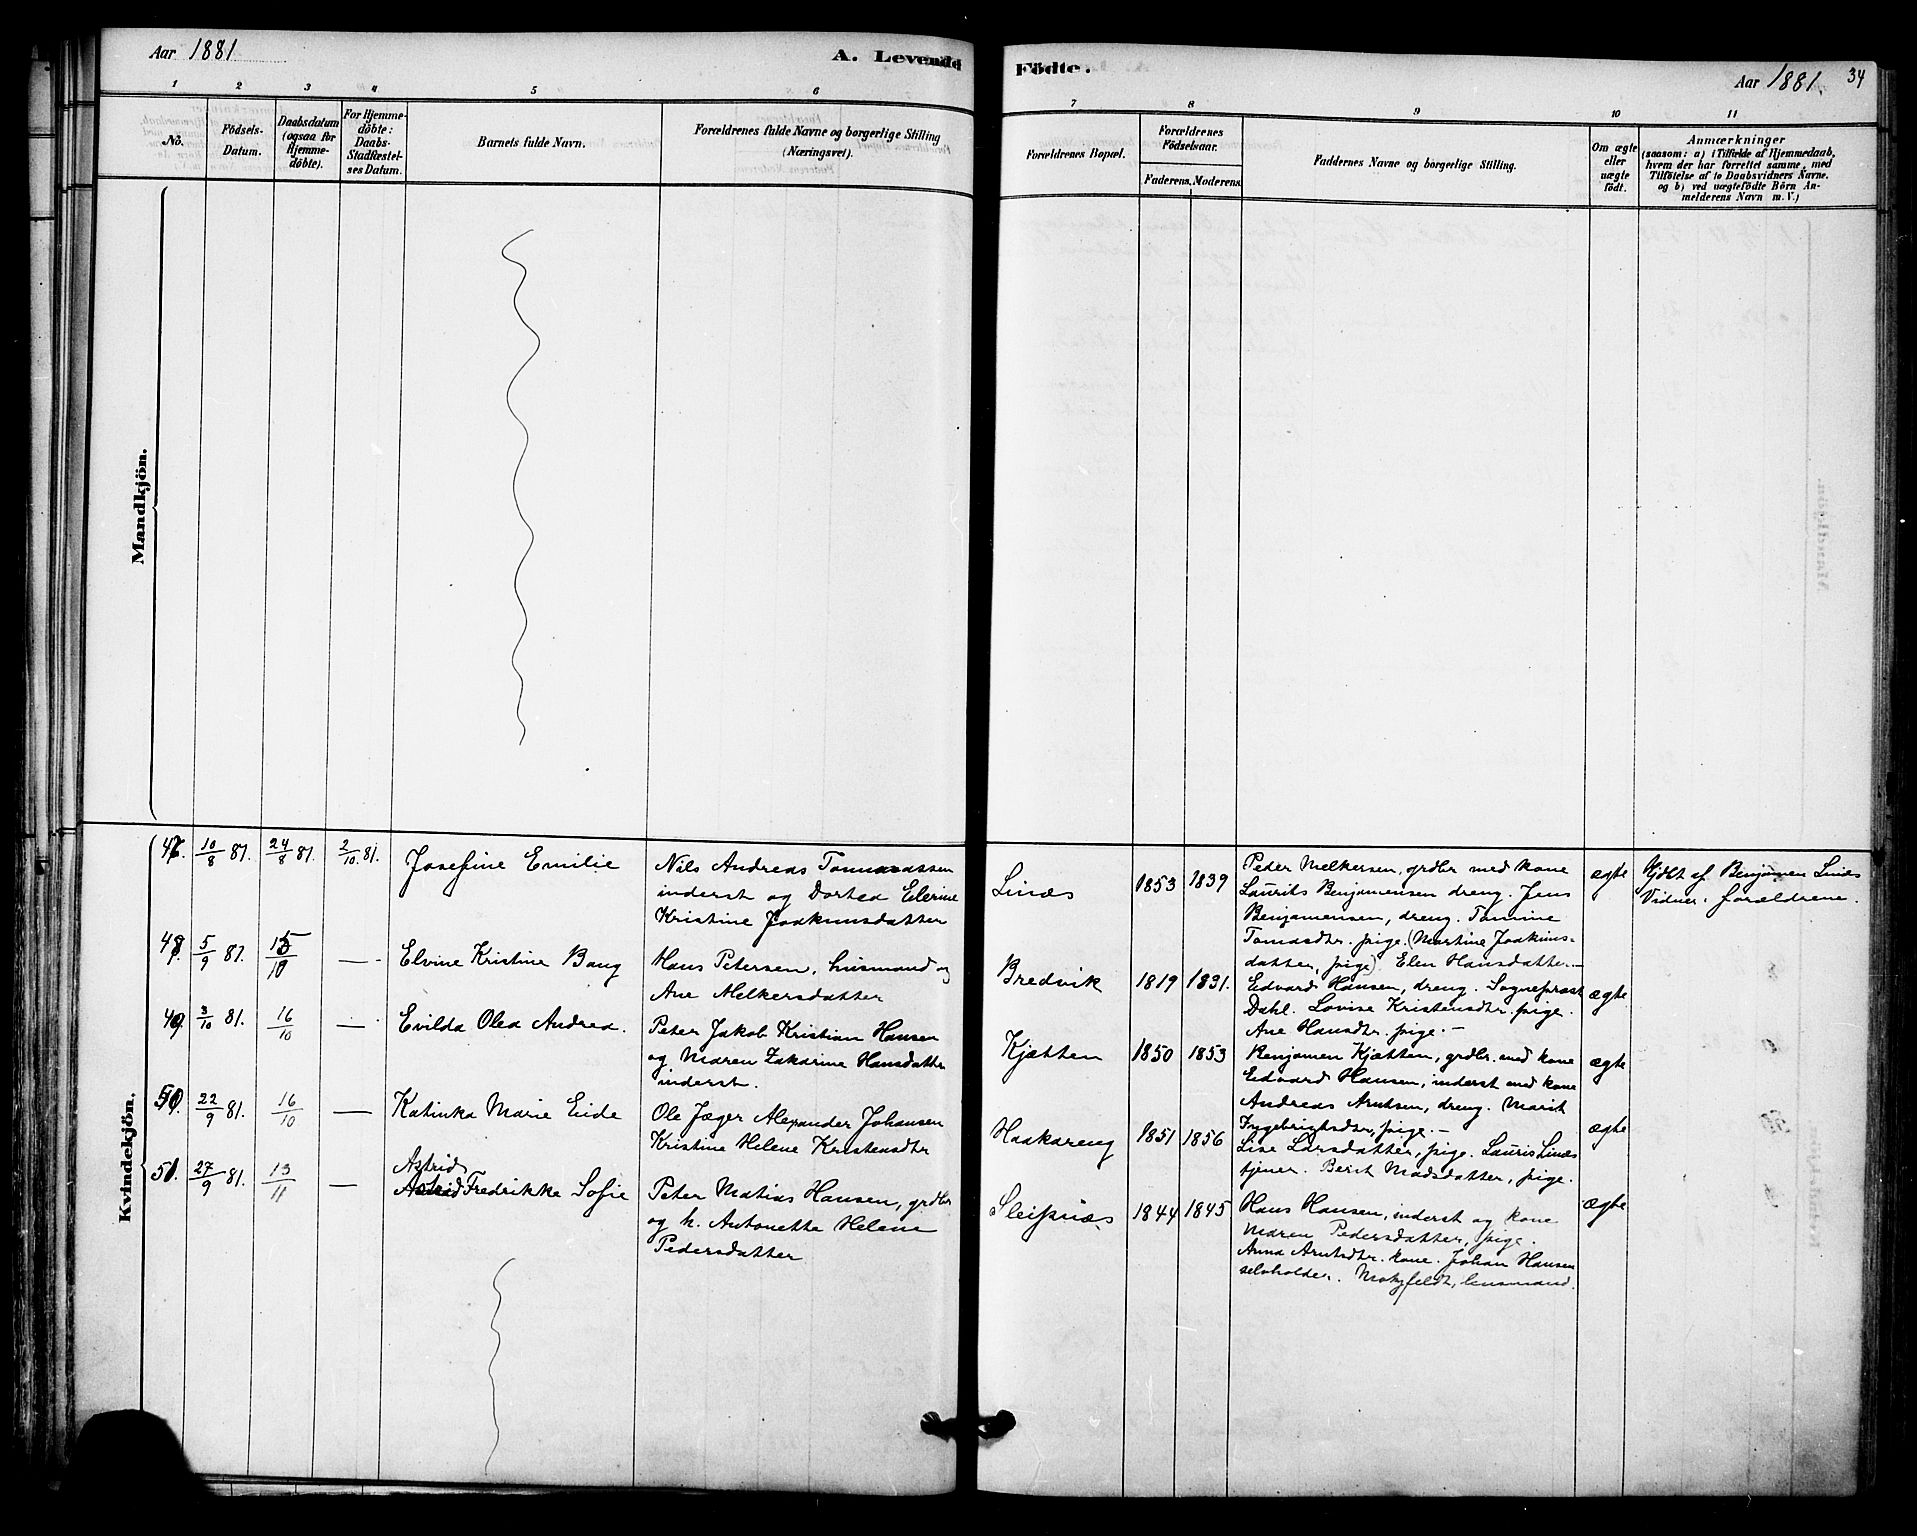 Aar 1881
A. Levende Födte.
Aar 1881. 34
1 2 3 4 5 6 7 8 9 10 11
No.
Födsels-Datum.
Daabsdatum (ogsaa for Hjemme-döbte).
For Hjemme-döbte: Daabs-Stadfæstel-ses Datum.
Barnets fulde Navn.
Forældrenes fulde Navne og borgerlige Stilling (Næringsvei).
Forældrenes Bopæl.
Forældrenes Födselsaar.
Faderens. Moderens.
Faddernes Navne og borgerlige Stilling.
Om ægte eller uægte födt.
Anmærkninger
(saasom: a) i Tilfælde af Hjemmedaab,
hvem der har forrettet samme, med
Tilföielse af to Daabsvidners Navne.
og b) ved uægtefödte Börn An-
melderens Navn m. V.)
Mandkjön.
Kvindekjön.
10/8 81. 24/8 81. 2/10 81. Josefine Emilie
Nils Andreas Tomassen
inderst og Dortea Elerine
Kristine Joakimsdatter
Linæs 1853 1839
Peder Melkersen, grdbr med kone
Laurits Benjamensen dreng. Jens
Benjamensen, dreng. Tomine
Tomasdtr. pige. (Martine Joakims-
datter, pige) Elen Hansdatter.
ægte
Hjdbt af Benjamen Linæs
Vidner: forældrene.
48 5/9 81. 15/10 — Elvine Kristine Bang
Hans Petersen, husmand og
Ane Melkersdatter
Bredvik 1819 1831.
Edvard Hansen, dreng. Sognepræst
Dahl. Lovise Kristensdtr. pige.
Ane Hansdtr. pige. —
ægte
49 3/10 81. 16/10 — Evilda Olea Andrea.
Peter Jakob Kristian Hansen
og Maren Zakarine Hansdatter
inderst.
Kjætten 1850 1853
Benjamen Kjætten, grdbr. med kone
Edvard Hansen, inderst med kone
Andreas Arntsen, dreng. Marit
Ingebrigtsdtr, pige. —
ægte
50 22/9 81. 16/10 — Katinka Marie Eide
Ole Jæger Alexander Johansen
Kristine Helene Kristensdtr
Haakareng 1851 1856
Lise Larsdatter, pige. Lauris Linæs
tjener. Berit Madsdatter, pige.
ægte
51 27/9 81. 13/11 — Astrid
Astrid Fredrikke Sofie
Peter Matias Hansen, grdbr
og h. Antonette Helene
Pedersdatter
Sleipnæs 1844 1845
Hans Hansen, inderst og kone
Maren Pedersdatter, pige.
Anna Arntsdtr. kone. Johan Hansen
selvholder. Motzfeldt, lensmand.
ægte